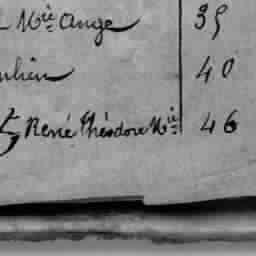 Mie Ange 39
40
René Théodore Mie 46